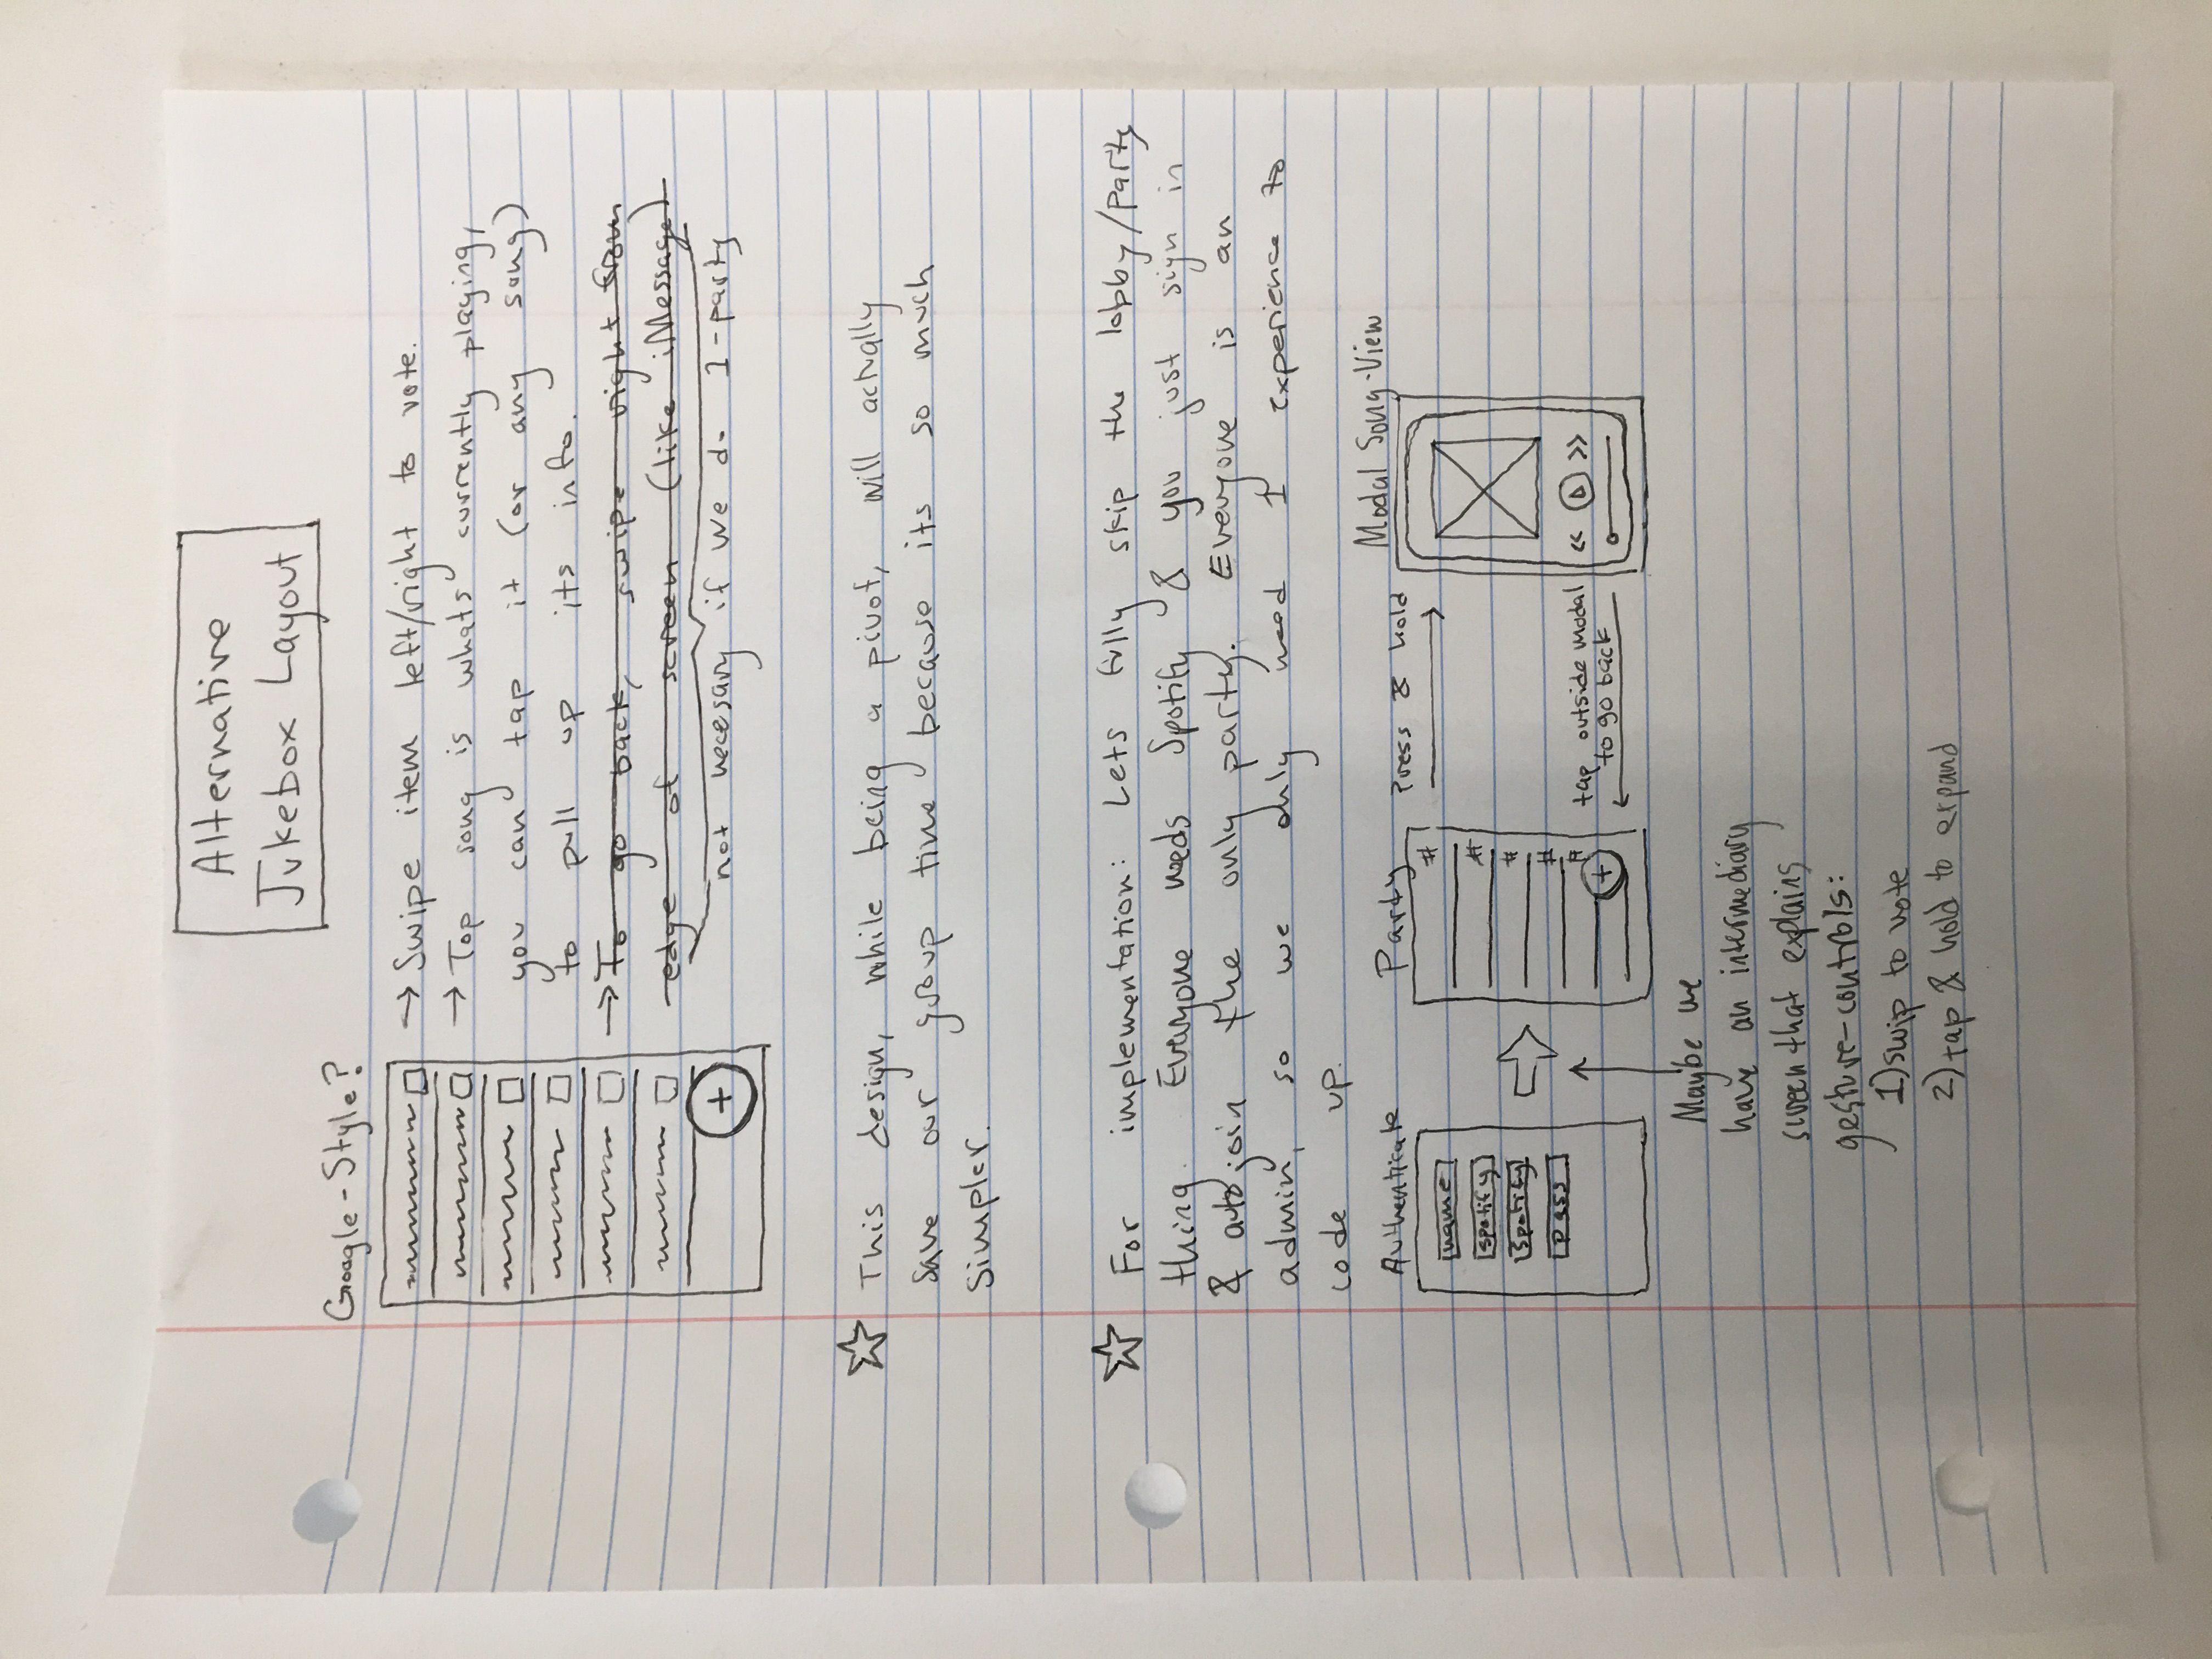 Alternative
Jukebox Layout
Google-Style?
→ Swipe item left/right to vote.
→ Top song is whats currently playing,
you can tap it (or any song)
to pull up its info.
→ To go back, swipe right from
edge of screen (like iMessage)
not necesary if we do 1-party
+
☆ This design, while being a pivot, will actually
save our group time because its so much
simpler.
☆ For implementation: Lets fully skip the lobby/party
thing. Everyone needs Spotify & you just sign in
& autojoin the only party. Everyone is an
admin, so we only need 1 experience to
code up.
Authenticate
name
spotify
spotify
pass
Party
#
#
#
#
#
+
Press & hold
tap outside modal
to go back
Modal Song-View
<< >>
Maybe we
have an intermediary
screen that explains
gesture-controls:
1) swip to vote
2) tap & hold to expand